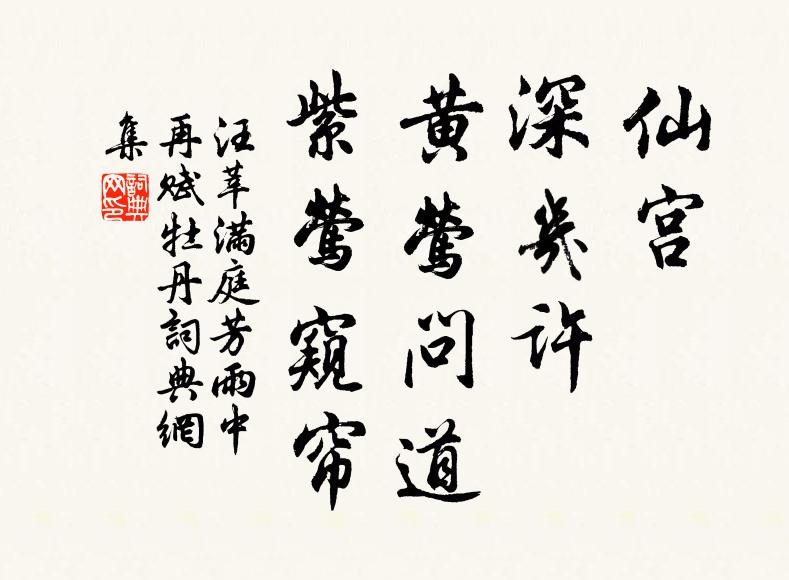 仙宫
深几许
黄莺问道
紫莺窥帘
汪莘满庭芳雨中
再赋牡丹词典网
集
词典网印